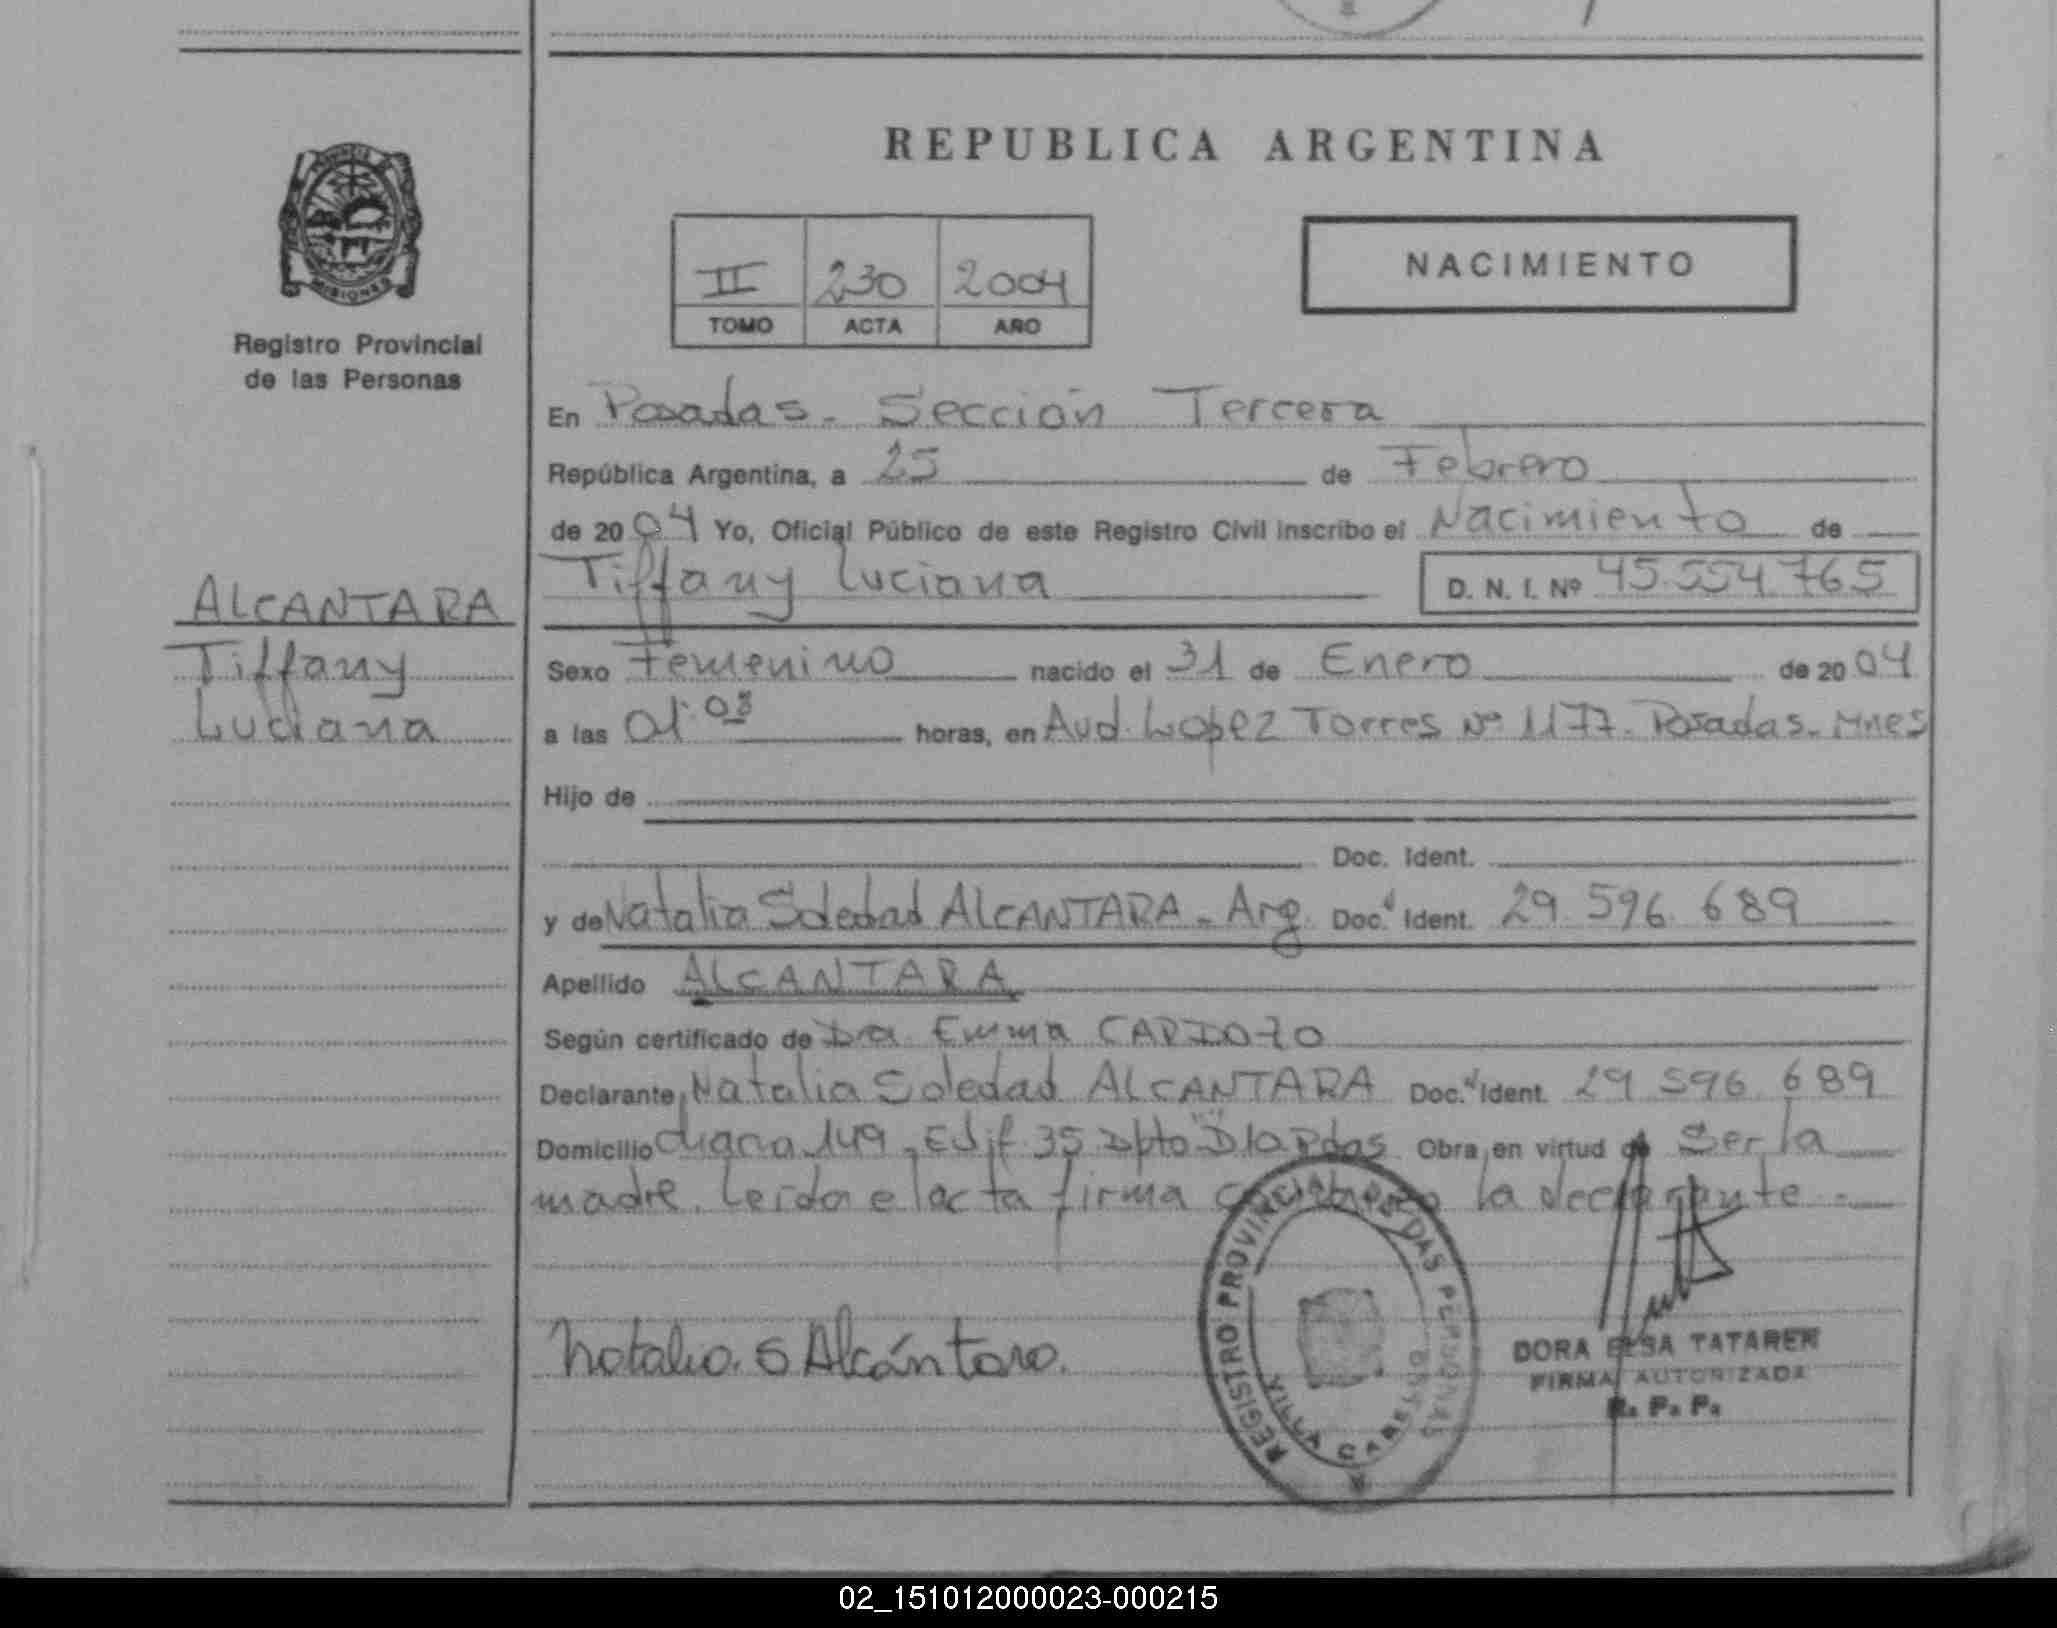 REPUBLICA ARGENTINA
MISIONES
Registro Provincial
de las Personas
II 230 2004
TOMO ACTA AÑO
NACIMIENTO
En Posadas - Sección Tercera
República Argentina, a 25 de Febrero
de 2004 Yo, Oficial Público de este Registro Civil inscribo el Nacimiento de
Tiffany Luciana D. N. I. Nº 45.554.765
ALCANTARA
Tiffany
Luciana
Sexo Femenino nacido el 31 de Enero de 2004
a las 01:08 horas, en Avd. Lopez Torres Nº 1177 - Posadas - Mnes
Hijo de
Doc. Ident.
y de Natalia Soledad ALCANTARA - Arg. Doc. Ident. 29.596.689
Apellido ALCANTARA
Según certificado de Dra Emma CARDOZO
Declarante Natalia Soledad ALCANTARA Doc. Ident. 29.596.689
Domicilio 149 - Edif. 35 Dpto "D" Pdas Obra en virtud de Ser la
madre. Leida el acta firma la declarante -
Natalia. S Alcántara.
REGISTRO PROVINCIAL DE LAS PERSONAS
VILLA CABELLO
DORA ELSA TATAREN
FIRMA AUTORIZADA
R. P. P.
02_151012000023-000215